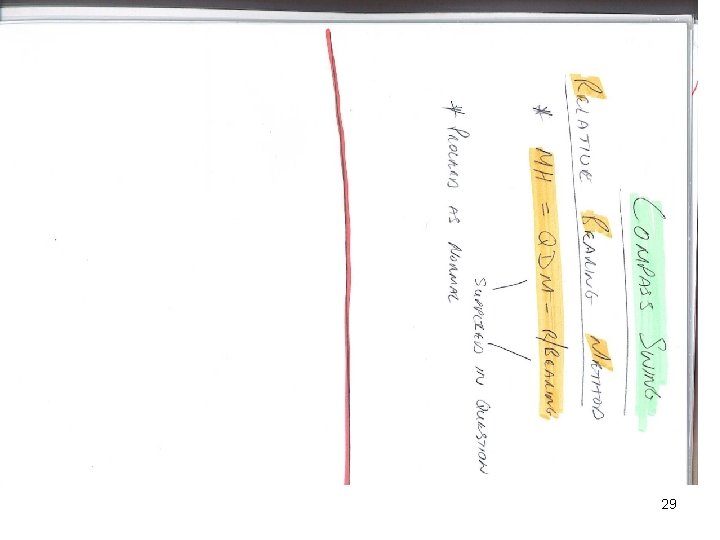 COMPASS SWING
RELATIVE BEARING METHOD
* MH = QDM - R/BEARING
SUPPLIED IN QUESTION
* PROCEED AS NORMAL
29